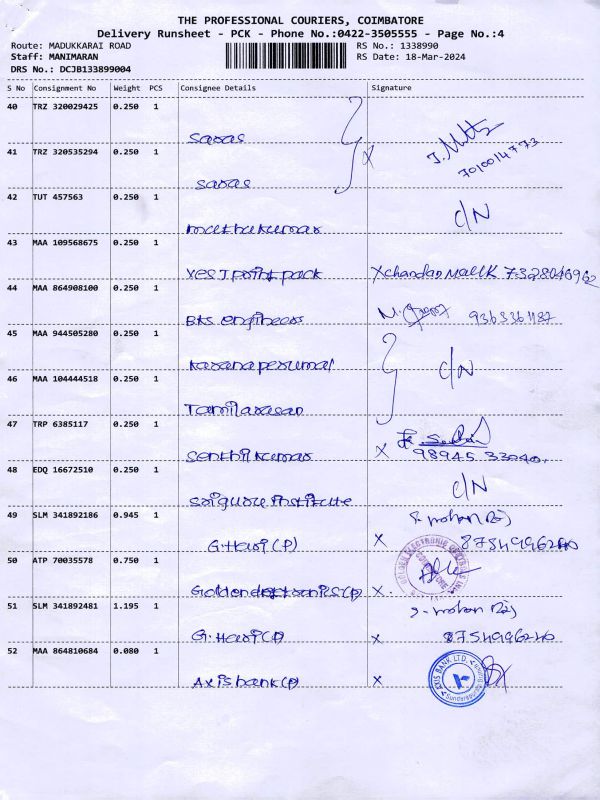 THE PROFESSIONAL COURIERS, COIMBATORE
Delivery Runsheet - PCK - Phone No.:0422-3505555 - Page No.:4
Route: MADUKKARAI ROAD
RS No.: 1338990
Staff: MANIMARAN
RS Date: 18-Mar-2024
DRS No.: DCJB133899004
S No Consignment No Weight PCS Consignee Details Signature
40 TRZ 320029425 0.250 1
saras
41 TRZ 320535294 0.250 1
7010014773
saras
42 TUT 457563 0.250 1
C/N
muthukumar
43 MAA 109568675 0.250 1
yes J point pack X chandan Mallk
44 MAA 864908100 0.250 1
Bks engineers 9363361187
45 MAA 944505280 0.250 1
Karanaperumal
C/N
46 MAA 104444518 0.250 1
Tamilarasan
47 TRP 6385117 0.250 1
Senthilkumar X 98945 33040
48 EDQ 16672510 0.250 1
C/N
saiguru institute
49 SLM 341892186 0.945 1
S. mohan
G.Hari (P) X
50 ATP 70035578 0.750 1
Golden electronics (P) X
51 SLM 341892481 1.195 1
S. mohan
G.Hari (P) X
52 MAA 864810684 0.080 1
AXIS BANK LTD.
Axis bank (P) X